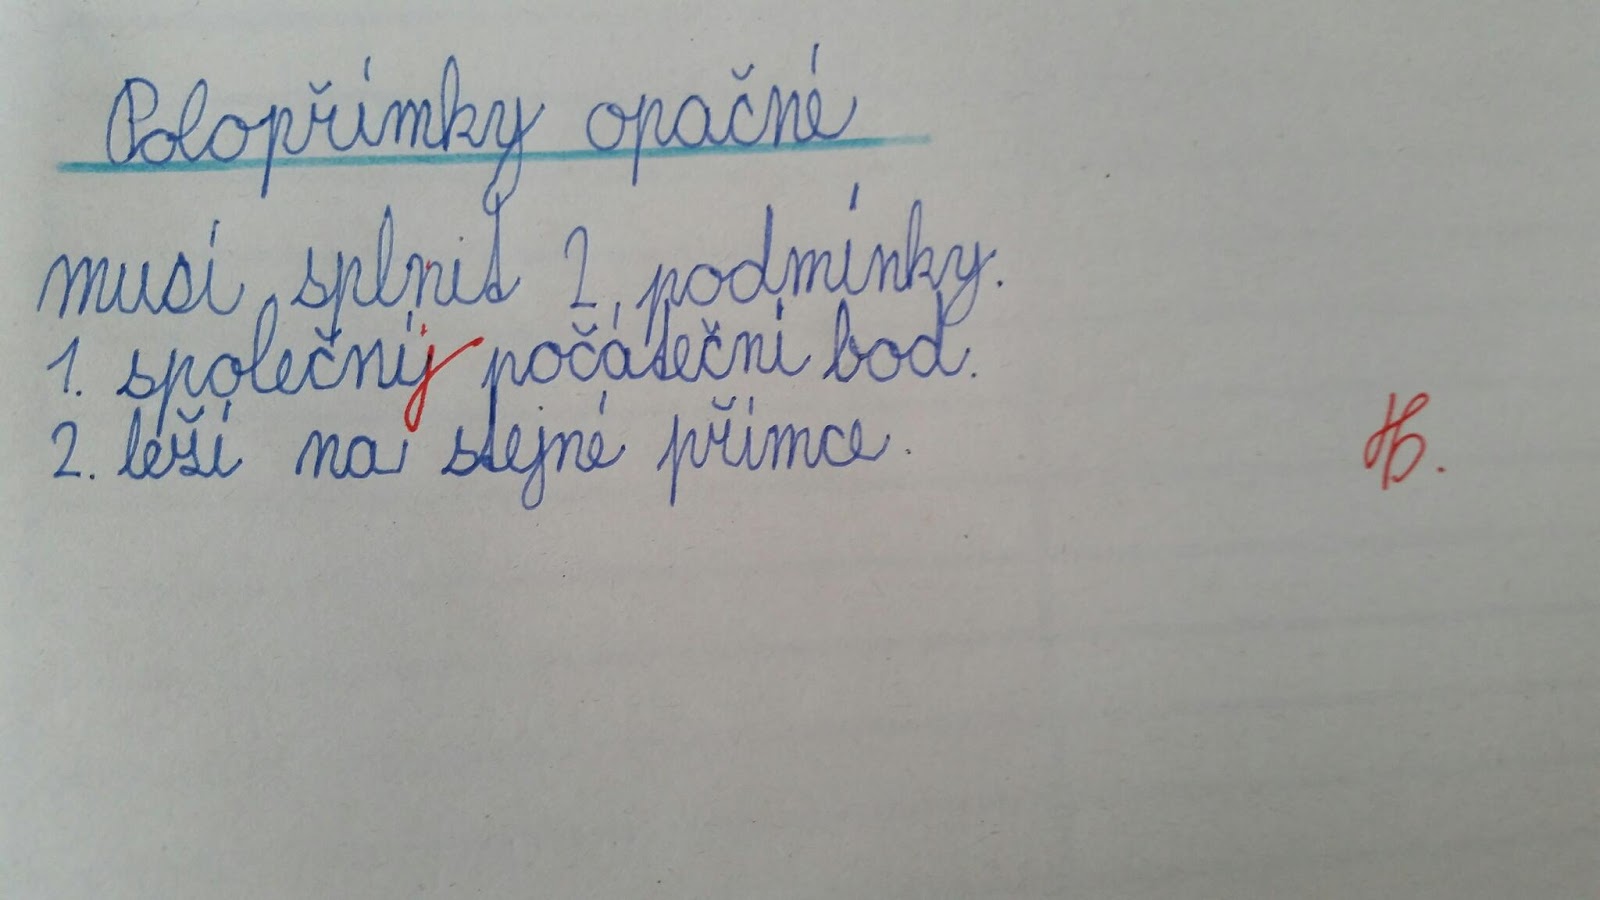 Polopřímky opačné
musí splnit 2 podmínky.
1. společný počáteční bod.
2. leží na stejné přímce.